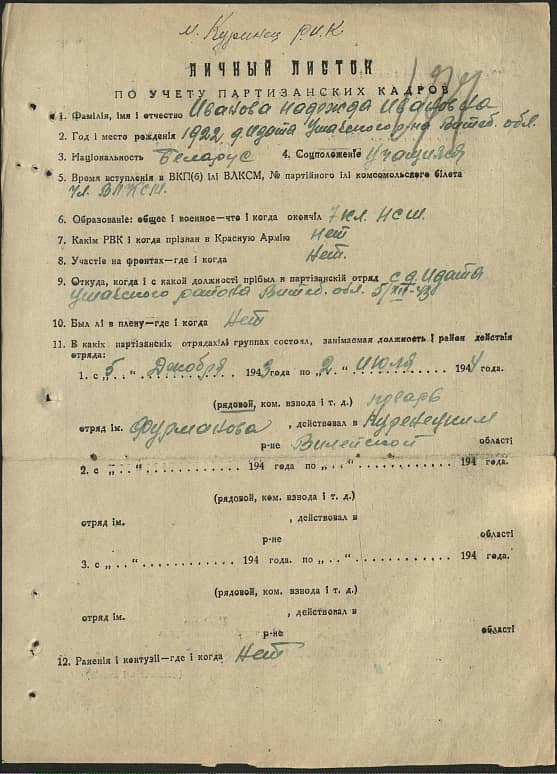 м. Куринец Р.И.К
ЛИЧНЫЙ ЛИСТОК
ПО УЧЕТУ ПАРТИЗАНСКИХ КАДРОВ
1. Фамілія, імя і отчество Иванова надежда Ивановна
2. Год і место рожденія 1922, д. Идата Ушачского р-на Витеб. обл.
3. Національность Беларус 4. Соцположеніе Учащияся
5. Время вступления в ВКП(б) ілі ВЛКСМ, № партійного ілі комсомольского білета
Чл. ВЛКСМ.
6. Образованіе: общее і военное—что і когда окончіл 7 кл. НСШ.
7. Какім РВК і когда прізнан в Красную Армію нет
8. Участіе на фронтах—где і когда Нет.
9. Откуда, когда і с какой должності прібыл в партізанскій отряд с д. Идаты
Ушачского района Витеб. обл. 5/XII-43г
10. Был лі в плену—где і когда Нет
11. В какіх партізанскіх отрядахілі группах состоял, занімаемая должность і район действія
отряда:
1. с „ 5 " Декабря 1943 года по „ 2 " Июля 1944 года.
(рядовой, ком. взвода і т. д.) пекарь
отряд ім. Фурманова , действовал в Куренецким
р-не Вилейской області
2. с „ . . " . . . . . . . . . . . . 194 года по „ . . " . . . . . . . . . . . . 194 года.
(рядовой, ком. взвода і т. д.)
отряд ім. , действовал в
р-не області
3. с „ . . " . . . . . . . . . . . . 194 года. по „ . . " . . . . . . . . . . . . 194 года.
(рядовой, ком. взвода і т. д.)
отряд ім. , действовал в
р-не області
12. Раненія і контузіі—где і когда Нет